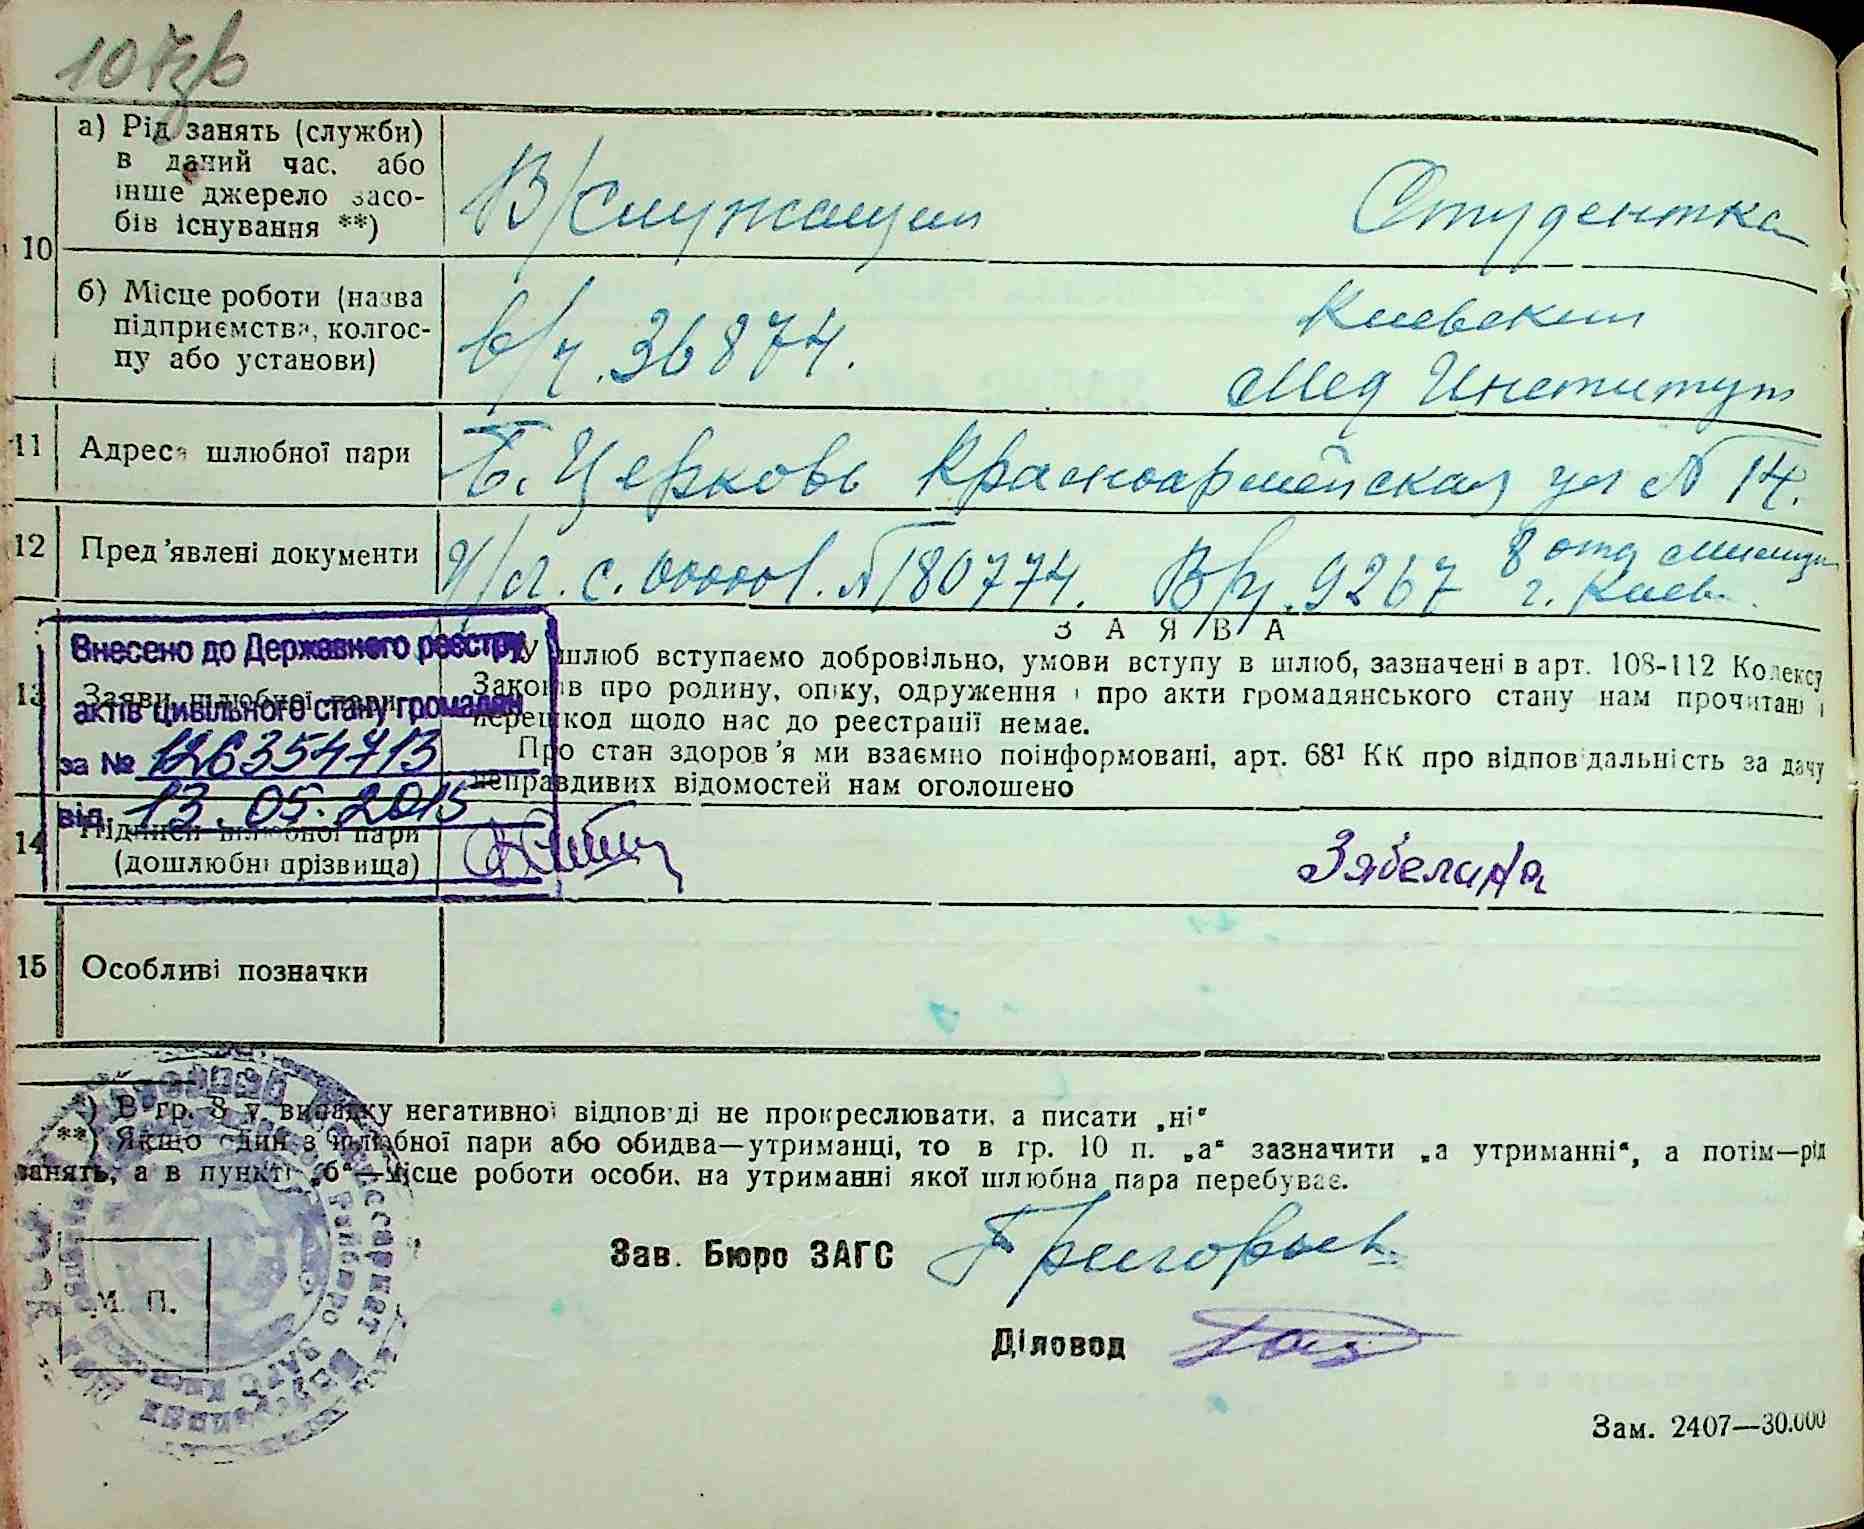 107зв
10
а) Рід занять (служби)
в даний час. або
інше джерело засо-
бів існування **)
В/служащий
Студентка
б) Місце роботи (назва
підприємства, колгос-
пу або установи)
в/ч. 36874.
Киевский
Мед Институт
11
Адреса шлюбної пари
Б. Церковь Красноармейская ул № 14.
12
Пред'явлені документи
У/Л. с. 00001. № 180774. Вр/ 9267 8 отд милиции
г. Киев.
Внесено до Державного реєстру
актів цивільного стану громадян
за № 126354713
від 13.05.2015
ЗАЯВА
13
Заяви шлюбної пари
У шлюб вступаємо добровільно, умови вступу в шлюб, зазначені в арт. 108-112 Кодексу
Законів про родину, опіку, одруження і про акти громадянського стану нам прочитані і
перешкод щодо нас до реєстрації немає.
Про стан здоров'я ми взаємно поінформовані, арт. 68¹ КК про відповідальність за дачу
неправдивих відомостей нам оголошено
14
Підписи шлюбної пари
(дошлюбні прізвища)
Зябелина
15
Особливі позначки
*) В гр. 8 у випадку негативної відповіді не прокреслювати, а писати „ні“
**) Якщо один з шлюбної пари або обидва—утриманці, то в гр. 10 п. „а“ зазначити „а утриманні“, а потім—рід
занять, а в пункті „б“—Місце роботи особи. на утриманні якої шлюбна пара перебуває.
Зав. Бюро ЗАГС Григорьев
М. П.
Діловод
Зам. 2407—30.000